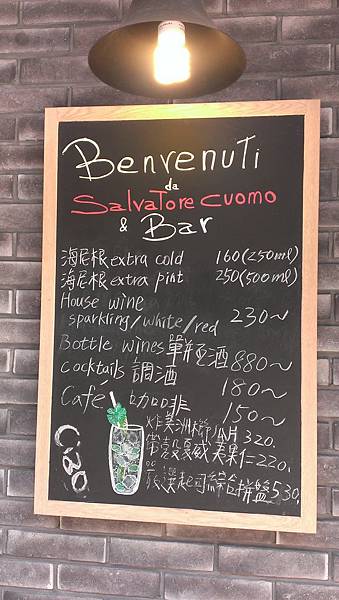 Benvenuti
da
Salvatore cuomo
& Bar
海尼根 extra cold 160(250ml)
海尼根 extra pint 250(500ml)
House wine
sparkling/white/red 230~
Bottle wines 單瓶酒 880~
cocktails 調酒 180~
Café 咖啡 150~
炸美洲 320.
帶殼夏威夷果仁 220.
起司綜合拼盤 530.
CIBO